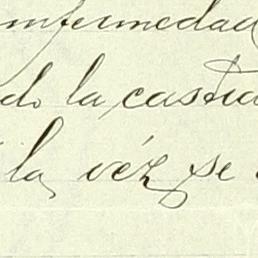 enfermedad
do la castra
la véz se